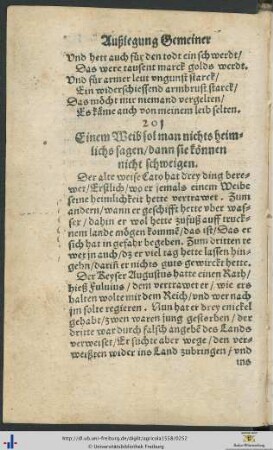 Außlegung Gemeiner
Vnd hett auch für den todt ein schwerdt/
Das were tausent marck golds werdt.
Vnd für armer leut vngunst starck/
Ein widerschiessend armbrust starck/
Das möcht mir niemand vergelten/
Es käme auch von meinem leib selten.
201
Einem Weib sol man nichts heim-
lichs sagen/dann sie können
nicht schweigen.
Der alte weise Cato hat drey ding berew-
wet/Erstlich/wo er jemals einem Weibe
seine heimlickeit hette vertrawet. Zum
andern/wann er geschifft hette vber was-
ser/dahin er wol hette zufuß auff truck-
nem lande mögen kommē/das ist/Das er
sich hat in gefahr begeben. Zum dritten re
wet jn auch/dz er viel tag hette lassen hin-
gehn/dariñ er nichts guts gewirckt hette.
Der Keyser Augustus hatte einen Rath/
hieß Fuluius/dem vertrawet er/wie ers
halten wolte mit dem Reich/vnd wer nach
jm solte regieren. Nun hat er drey enickel
gehabt/zwen waren jung gestorben/der
dritte war durch falsch angebē des Lands
verweiset/Er suchte aber wege/den ver-
weißten wider ins Land zubringen/vnd
ins
http://dl.ub.uni-freiburg.de/diglit/agricola1558/0252
© Universitätsbibliothek Freiburg
Baden-Württemberg